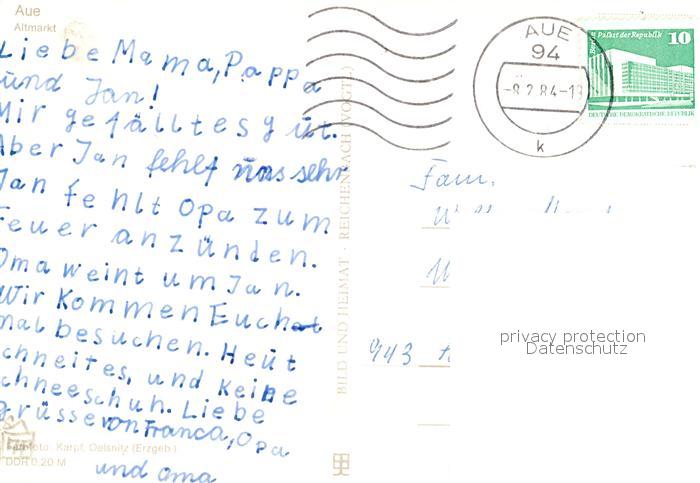 Aue
Altmarkt
Liebe Mama, Pappa
und Jan!
Mir gefällt es gut.
Aber Jan fehlt uns sehr
Jan fehlt Opa zum
Feuer anzünden.
Oma weint um Jan.
Wir kommen Euch
mal besuchen. Heut
schneites, und keine
schneeschuh. Liebe
grüsse von Franca, Opa
und oma
Farbfoto: Karpf, Oelsnitz (Erzgeb.)
DDR 0,20 M
BILD UND HEIMAT · REICHENBACH (VOGTL)
AUE
94
-8.2.84-
k
Palast der Republik
10
DEUTSCHE DEMOKRATISCHE REPUBLIK
Fam.
943
privacy protection
Datenschutz